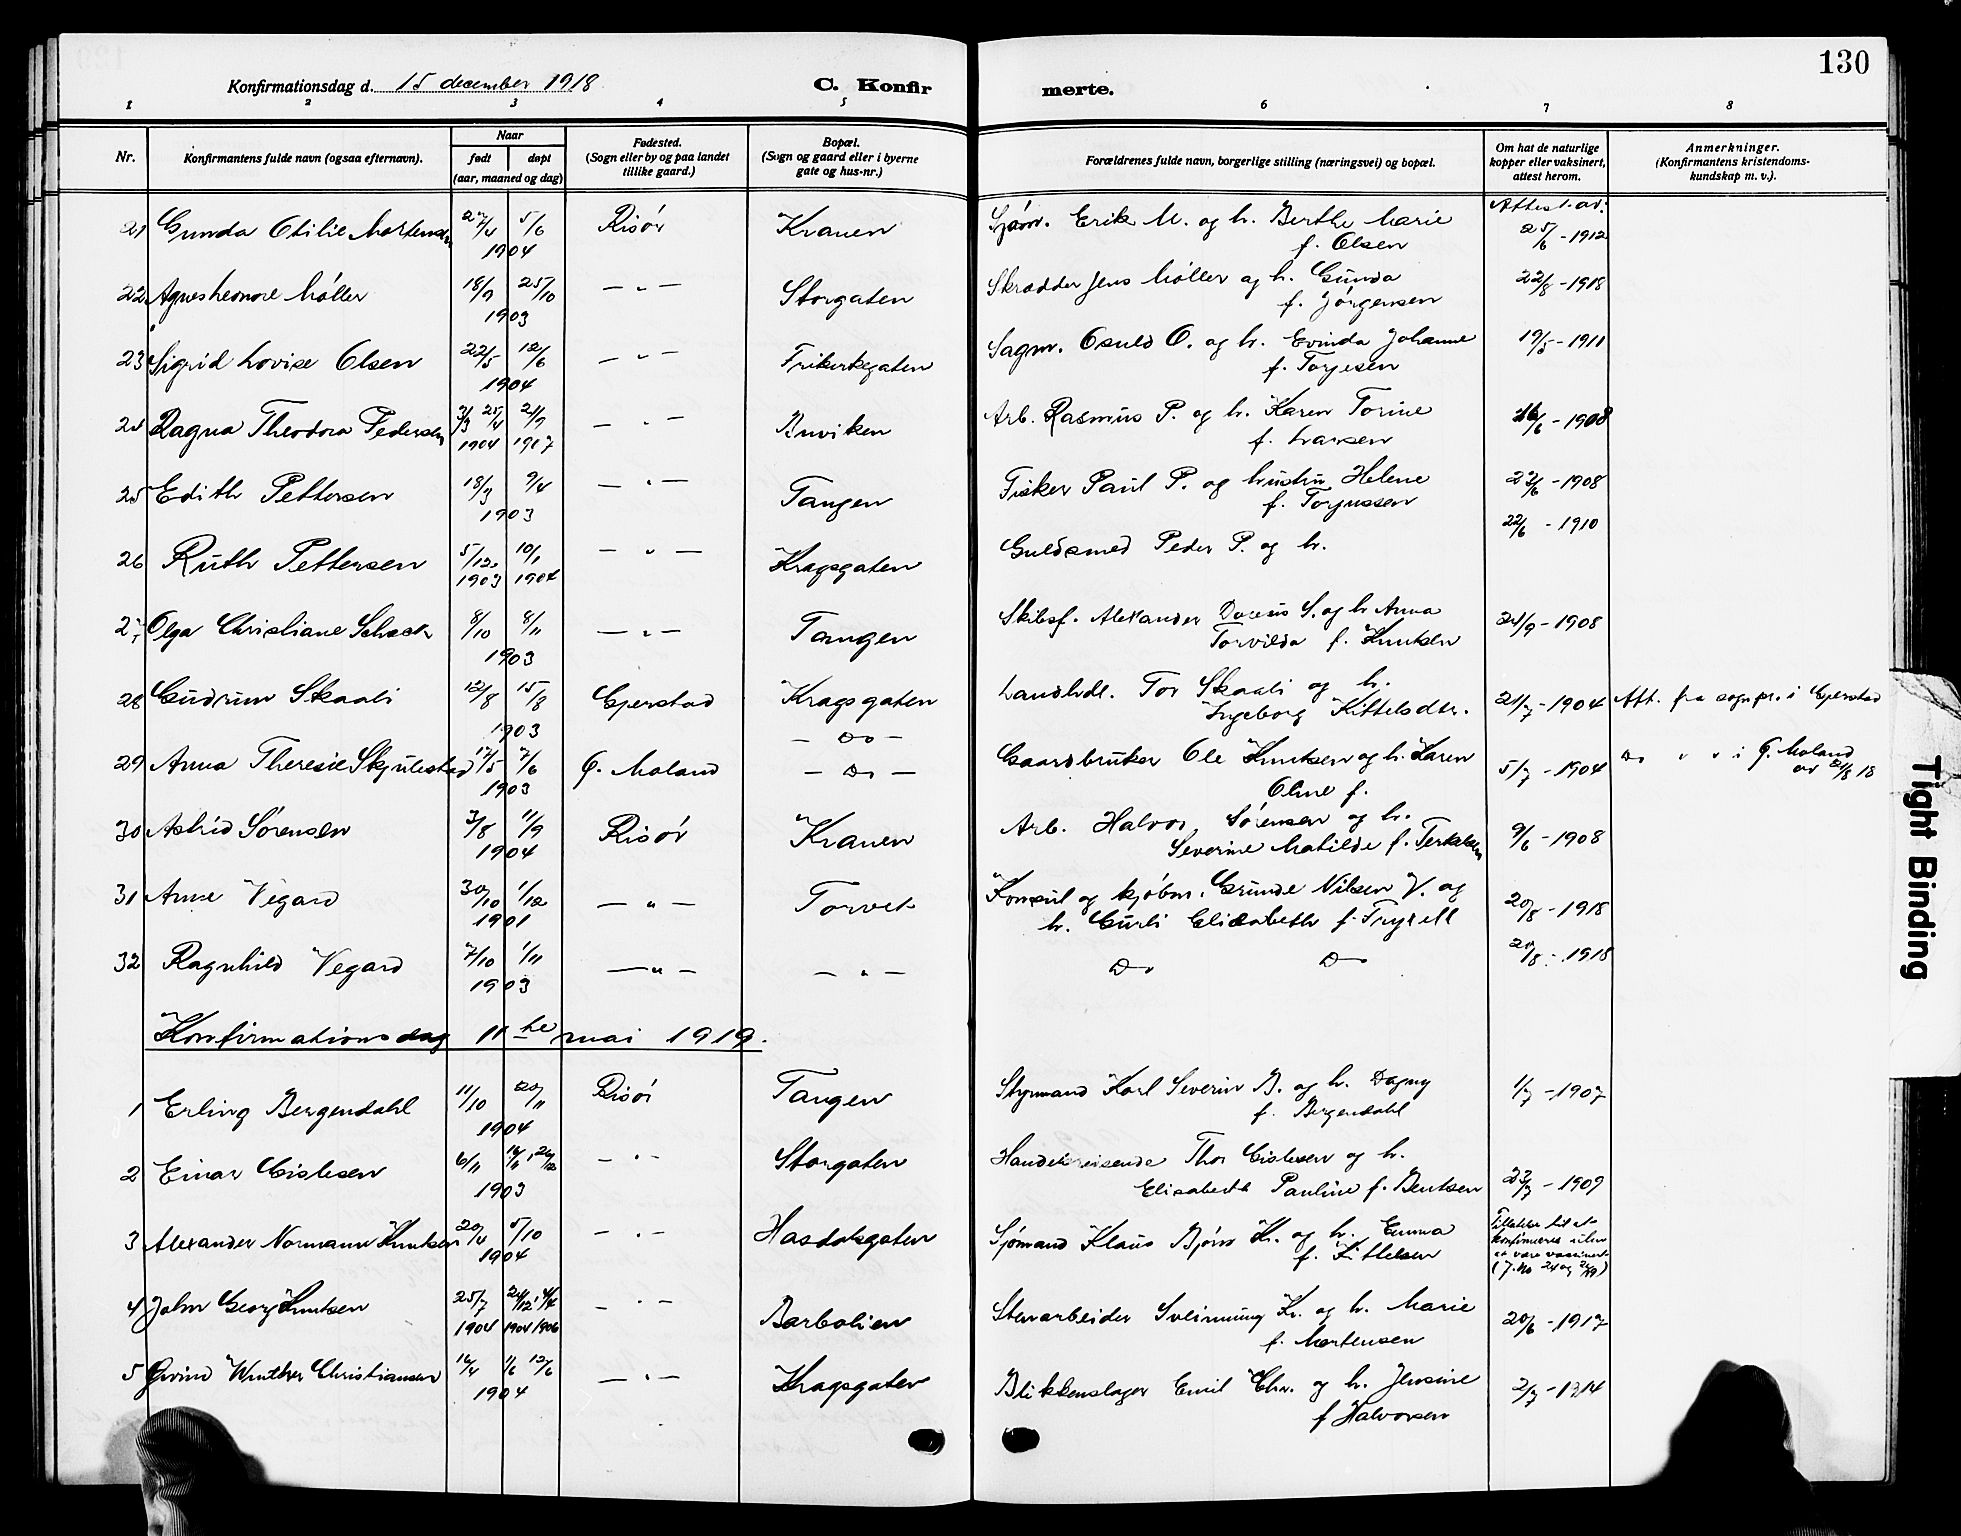 130
Konfirmationsdag d. 15 december 1918
C. Konfir
merte.
1 2 3 4 5 6 7 8
Nr.
Konfirmantens fulde navn (ogsaa efternavn).
Naar
født
døpt
(aar, maaned og dag)
Fødested.
(Sogn eller by og paa landet
tillike gaard.)
Bopæl.
(Sogn og gaard eller i byerne
gate og hus-nr.)
Forældrenes fulde navn, borgerlige stilling (næringsvei) og bopæl.
Om hat de naturlige
kopper eller vaksinert,
attest herom.
Anmerkninger.
(Konfirmantens kristendoms-
kundskap m. v.).
21 Gunda Otilie Mortensen 27/4 5/6 Risør Kranen Sjøm. Erik M. og h. Berthe Marie Attest av:
1904 f. Olsen 25/6 - 1912
22 Agnes Leonore Møller 18/9 25/10 — " — Storgaten Skrædder Jens Møller og h. Gunda 22/8 - 1918
1903 f. Jørgensen
23 Sigrid Lovise Olsen 22/5 12/6 — " — Frikirkegaten Sagm. Osuld O. og h. Evinda Johanne 19/5 - 1911
1904 f. Torjesen
24 Ragna Theodora Pedersen 25/4 21/9 — " — Buviken Arb. Rasmus P. og h. Karen Torine 16/6 - 1908
1904 1907 f. Larsen
25 Edith Pettersen 18/3 9/4 — " — Tangen Fisker Paul P. og hustru Helene 23/6 - 1908
1903 f. Torjussen
26 Ruth Pettersen 5/12 10/1 — " — Kragsgaten Guldsmed Peder P. og h. 22/6 - 1910
1903 1904
27 Olga Christiane Schack 8/10 8/11 — " — Tangen Skibsf. Alexander S. og h. Anna 24/9 - 1908
1903 Torvilda f. Knutsen
28 Gudrun Skaali 12/8 15/8 Gjerstad Kragsgaten Landhdl. Tor Skaali og h. 21/7 - 1904 Att. fra sognpr. i Gjerstad
1903 Ingeborg Kittelsdtr.
— Do —
29 Anna Theresie Skjulestad 17/5 7/6 Ø. Moland — Do — Gaardbruker Ole Knutsen og h. Karen 5/7 - 1904 Do " " i Ø. Moland
1903 Oline f. av 21/8 18
30 Astrid Sørensen 3/8 11/9 Risør Kranen Arb. Halvor Sørensen og h. 9/6 - 1908
1904 Severine Matilde f. Terkelsen
31 Anne Vegard 30/10 1/12 — " — Torvet Konsul og kjøbm. Grunde Nilsen V. og 20/8 - 1918
1901 h. Gurli Elisabeth f. Tryzell
32 Ragnhild Vegard 7/10 1/11 — " — — " — Do Do 20/8 - 1918
1903
Konfirmationsdag 11te mai 1919.
1 Erling Bergendahl 11/10 20/11 Risør Tangen Styrmand Karl Severin B. og h. Dagny 1/7 - 1907
1904 f. Bergendahl
2 Einar Gislesen 6/11 — " — Storgaten Handelsreisende Thor Gislesen og h.
1903 Elisabeth Pauline f. Bentsen 23/7 - 1909
3 Alexander Normann Knutsen 20/4 5/10 — " — Hasdalsgaten Sjømand Klaus Bjørn K. og h. Emma Tilladelse til at
1904 f. Kittelsen konfirmeres uten
at være vaccinert
4 John Georg Knutsen 25/7 24/12 4/4 — " — Barbolien Stenarbeider Sveinung K. og h. Marie 20/6 - 1917
1904 1904 1906 f. Mortensen
5 Øivind Winther Christiansen 16/4 1/6 12/6 — " — Kragsgaten Blikkenslager Emil Chr. og h. Jensine 2/7 - 1914
1904 f. Halvorsen
Tight Binding